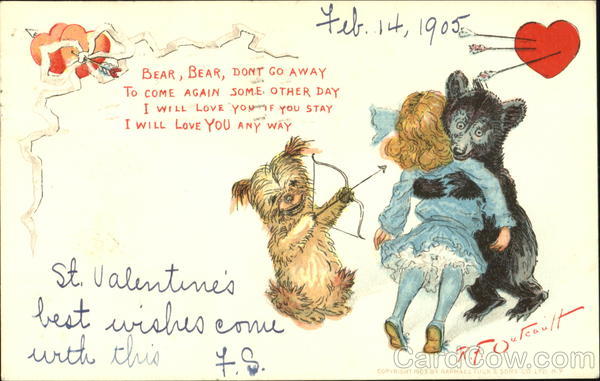 Feb. 14, 1905
BEAR, BEAR, DONT GO AWAY
TO COME AGAIN SOME OTHER DAY
I WILL LOVE YOU IF YOU STAY
I WILL LOVE YOU ANY WAY
St. Valentine's
best wishes come
with this F.S.
R.F. Outcault
COPYRIGHT 1903 BY RAPHAEL TUCK & SONS CO. LTD. N.Y.
CardCow.com